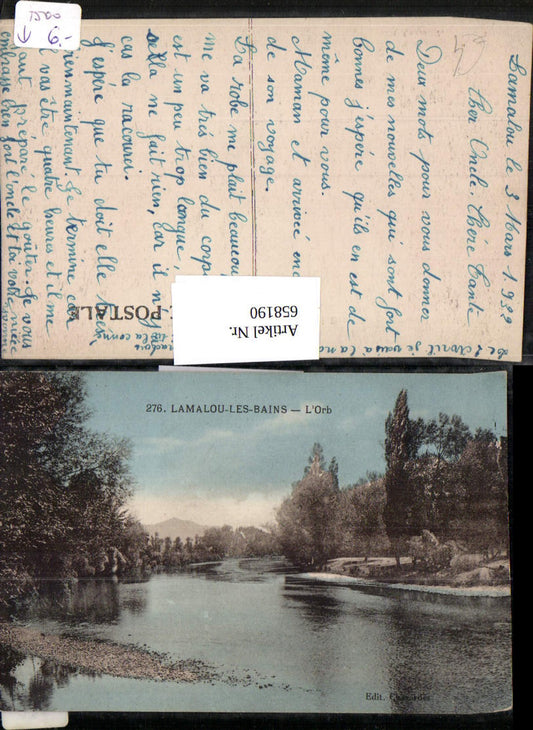 Lamalou le 3 Mars 1932
Cher Oncle. Chère Tante
Deux mots pour vous donner
de mes nouvelles qui sont fort
bonnes j'espère qu'ils en est de
même pour vous.
Maman et arrivé en
de son voyage.
La robe me plait beaucou
me va très bien du corp
est un peu trop longue
cella ne fait rien, car il n'y
cas la racourci.
J'espire que tu doit elle
maintenant. Je termine car
vas être quatre heures et il me
aut préparé le goûter. Je vous
embrasse bien fort l'oncle et ta votre nièce
POSTALE
Artikel Nr.
658190
276. LAMALOU-LES-BAINS — L'Orb
Edit.